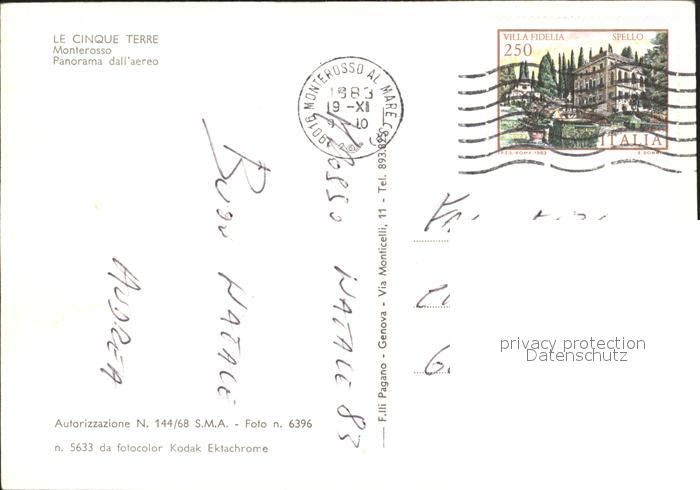 LE CINQUE TERRE
Monterosso
Panorama dall'aereo
VILLA FIDELIA SPELLO
250
ITALIA
I.P.Z.S.-ROMA-1983 E. DONN
19016 MONTEROSSO AL MARE (SP)
1983
19-XI
10
M.ROSSO NATALE 83
BUON NATALE
ANDREA
F.lli Pagano - Genova - Via Monticelli, 11 - Tel. 893.895
privacy protection
Datenschutz
Autorizzazione N. 144/68 S.M.A. - Foto n. 6396
n. 5633 da fotocolor Kodak Ektachrome